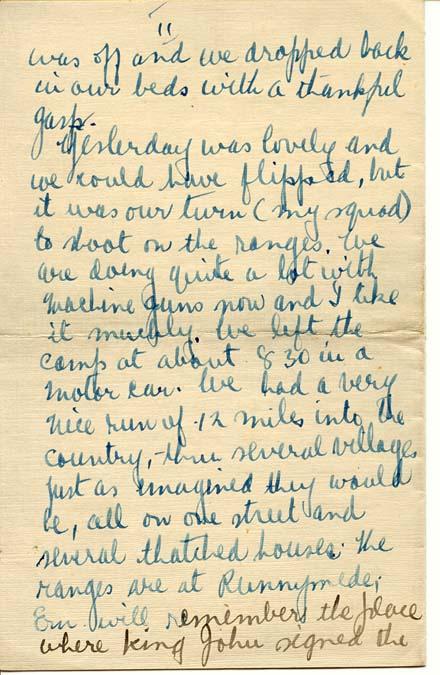 11
was off and we dropped back
in our beds with a thankful
gasp.
Yesterday was lovely and
we could have flipped, but
it was our turn (my squad)
to shoot on the ranges. We
are doing quite a lot with
machine guns now and I like
it muchly. We left the
camp at about 8 30 in a
motor car. We had a very
nice run of 12 miles into the
country, - thru several villages
just as imagined they would
be, all on one street and
several thatched houses. The
ranges are at Runnymede;
Ern will remembers the place
where King John signed the